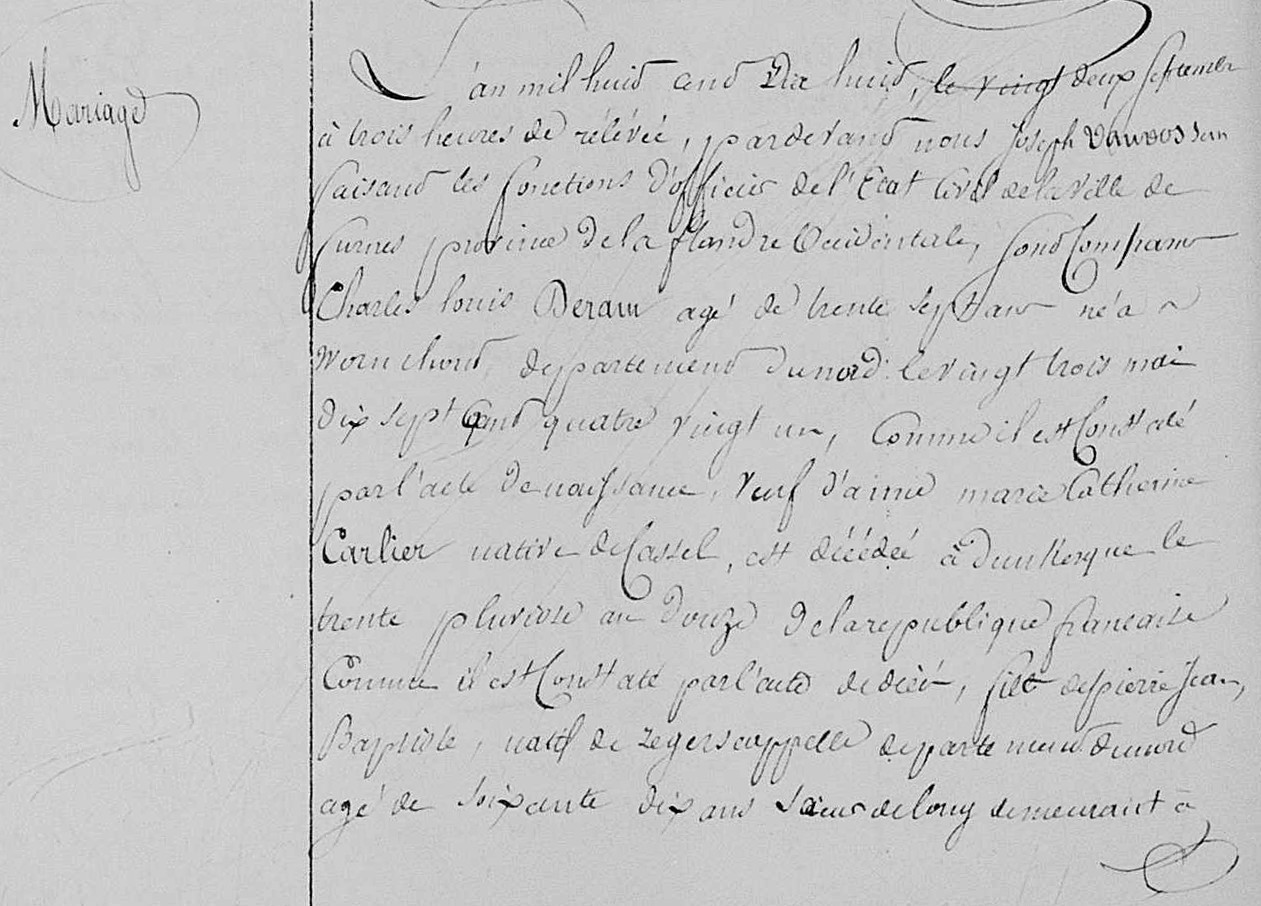 Mariage
L'an mil huit cent Dix huit, le vingt deux septembre
à trois heures de rélévée, pardevant nous Joseph
faisant les fonctions d'officier de l'Etat Civil de la ville de
furnes province de la flandre Occidentale, sont Comparus
Charles louis Deram agé de trente sept ans né a
Wormhout, departement du nord le vingt trois mai
dix sept Cent quatre vingt un, Comme il est Constaté
par l'acte de naissance, veuf d'aimée marie Catherine
Carlier native de Cassel, est décédée à Dunkerque le
trente pluviose an douze de la republique francaise
Comme il est Constaté par l'acte de décés, fils de pierre Jean,
Baptiste, natif de Zegerscappelle departement du nord
agé de soixante dix ans sçieur de long demeurant à